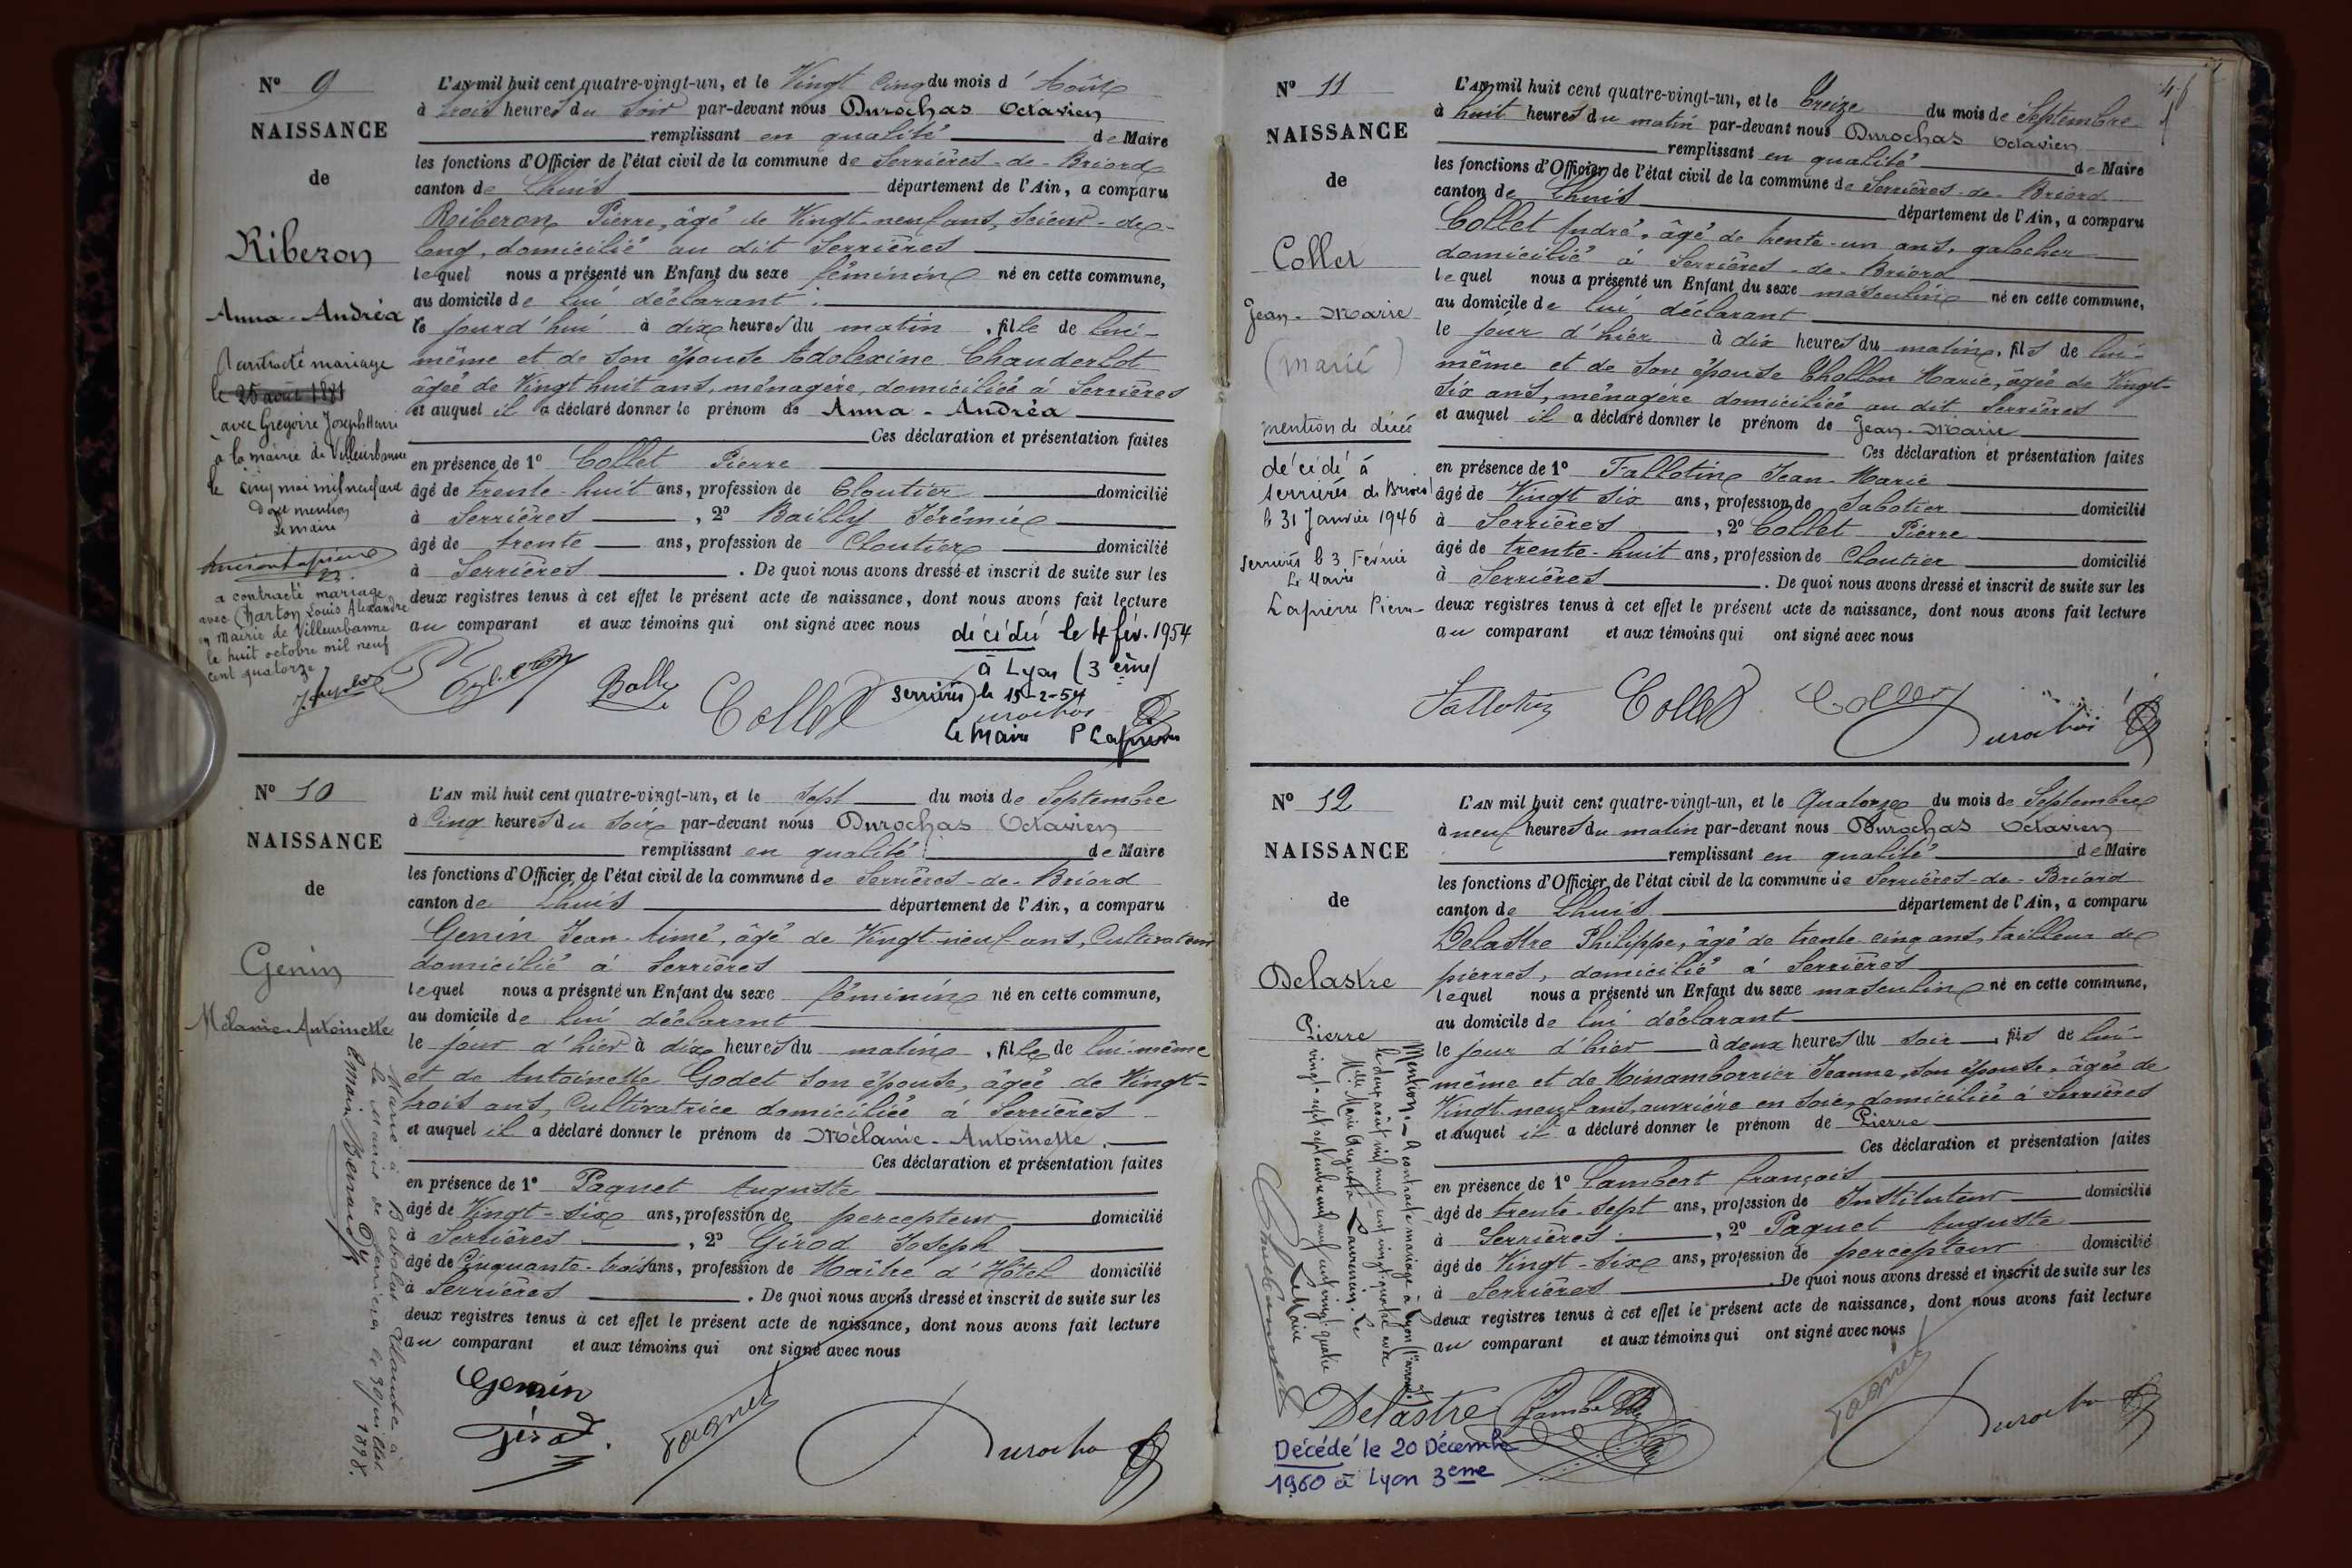 Nº 9
NAISSANCE
de
Riberon
Anna-Andréa
Contracté mariage
le 25 août 1881
avec Grégoire Joseph Henri
à la mairie de Villeurbanne
le cinq mai mil neuf cent
Dont mention
Le maire
a contracté mariage
avec Charton Louis Alexandre
en Mairie de Villeurbanne
le huit octobre mil neuf
cent quatorze
L'AN mil huit cent quatre-vingt-un, et le Vingt Cinq du mois d'Août
à trois heures du soir par-devant nous Durochas Octavien
remplissant en qualité de Maire
les fonctions d'Officier de l'état civil de la commune de Serrières-de-Briord
canton de Lhuis département de l'Ain, a comparu
Riberon Pierre, âgé de Vingt-neuf ans, Scieur-de-
long, domicilié au dit Serrières
lequel nous a présenté un Enfant du sexe féminin né en cette commune,
au domicile de lui déclarant
le jourd'hui à dix heures du matin, fille de lui-
même et de son épouse Adolexine Chauderlot
âgée de Vingt huit ans, ménagère, domiciliée à Serrières
et auquel il a déclaré donner le prénom de Anna-Andréa
Ces déclaration et présentation faites
en présence de 1º Collet Pierre
âgé de trente-huit ans, profession de Cloutier domicilié
à Serrières, 2º Bailly Jérémie
âgé de trente ans, profession de Cloutier domicilié
à Serrières. De quoi nous avons dressé et inscrit de suite sur les
deux registres tenus à cet effet le présent acte de naissance, dont nous avons fait lecture
au comparant et aux témoins qui ont signé avec nous
décédée le 4 fév. 1954
à Lyon (3ème)
Serrières le 15-2-54
Le Maire P Lapierre
Bally Collet
Nº 10
NAISSANCE
de
Genin
Mélanie-Antoinette
Marié à Babolat Claude à
la Mairie de Serrières le 30 juillet 1898.
L'AN mil huit cent quatre-vingt-un, et le Sept du mois de Septembre
à Cinq heures du soir par-devant nous Durochas Octavien
remplissant en qualité de Maire
les fonctions d'Officier de l'état civil de la commune de Serrières-de-Briord
canton de Lhuis département de l'Ain, a comparu
Genin Jean-Aimé, âgé de Vingt-neuf ans, Cultivateur
domicilié à Serrières
lequel nous a présenté un Enfant du sexe féminin né en cette commune,
au domicile de lui déclarant
le jour d'hier à dix heures du matin, fille de lui-même
et de Antoinette Godet son épouse, âgée de Vingt-
trois ans, Cultivatrice domiciliée à Serrières
et auquel il a déclaré donner le prénom de Mélanie-Antoinette.
Ces déclaration et présentation faites
en présence de 1º Paquet Auguste
âgé de Vingt-six ans, profession de percepteur domicilié
à Serrières, 2º Girod Joseph
âgé de Cinquante-trois ans, profession de Maître d'Hôtel domicilié
à Serrières. De quoi nous avons dressé et inscrit de suite sur les
deux registres tenus à cet effet le présent acte de naissance, dont nous avons fait lecture
au comparant et aux témoins qui ont signé avec nous
Genin
Girod
Paquet
Durochas
Nº 11
NAISSANCE
de
Collet
Jean-Marie
(Marié)
Mention de décés
décédé à
Serrières de Briord
le 31 Janvier 1946
Serrières le 3 Février
Le Maire
Lapierre Pierre
L'AN mil huit cent quatre-vingt-un, et le Treize du mois de Septembre
à huit heures du matin par-devant nous Durochas Octavien
remplissant en qualité de Maire
les fonctions d'Officier de l'état civil de la commune de Serrières-de-Briord
canton de Lhuis département de l'Ain, a comparu
Collet André, âgé de trente-un ans, galocher
domicilié à Serrières-de-Briord
lequel nous a présenté un Enfant du sexe masculin né en cette commune,
au domicile de lui déclarant
le jour d'hier à dix heures du matin, fils de lui-
même et de son épouse Thollon Marie, âgée de Vingt-
Six ans, ménagère domiciliée au dit Serrières
et auquel il a déclaré donner le prénom de Jean-Marie
Ces déclaration et présentation faites
en présence de 1º Fallotin Jean-Marie
âgé de Vingt six ans, profession de Sabotier domicilié
à Serrières, 2º Collet Pierre
âgé de trente-huit ans, profession de Cloutier domicilié
à Serrières. De quoi nous avons dressé et inscrit de suite sur les
deux registres tenus à cet effet le présent acte de naissance, dont nous avons fait lecture
au comparant et aux témoins qui ont signé avec nous
Fallotin Collet Collet Durochas
Nº 12
NAISSANCE
de
Delastre
Pierre
Mention. - A contracté mariage à Lyon (1er arrond.)
le deux août mil neuf cent vingt-quatre avec
Melle Marie Augusta Laurencin. Le
vingt-sept septembre mil neuf cent vingt-quatre
Le Maire
L'AN mil huit cent quatre-vingt-un, et le Quatorze du mois de Septembre
à neuf heures du matin par-devant nous Durochas Octavien
remplissant en qualité de Maire
les fonctions d'Officier de l'état civil de la commune de Serrières-de-Briord
canton de Lhuis département de l'Ain, a comparu
Delastre Philippe, âgé de trente-cinq ans, tailleur de
pierres, domicilié à Serrières
lequel nous a présenté un Enfant du sexe masculin né en cette commune,
au domicile de lui déclarant
le jour d'hier à deux heures du soir, fils de lui-
même et de Minamborrier Jeanne, son épouse, âgée de
Vingt-neuf ans, ouvrière en soie, domiciliée à Serrières
et auquel il a déclaré donner le prénom de Pierre
Ces déclaration et présentation faites
en présence de 1º Lambert françois
âgé de trente-sept ans, profession de Instituteur domicilié
à Serrières, 2º Paquet Auguste
âgé de Vingt-six ans, profession de percepteur domicilié
à Serrières. De quoi nous avons dressé et inscrit de suite sur les
deux registres tenus à cet effet le présent acte de naissance, dont nous avons fait lecture
au comparant et aux témoins qui ont signé avec nous
Delastre Lambert Paquet Durochas
Décédé le 20 Décembre
1960 à Lyon 3eme